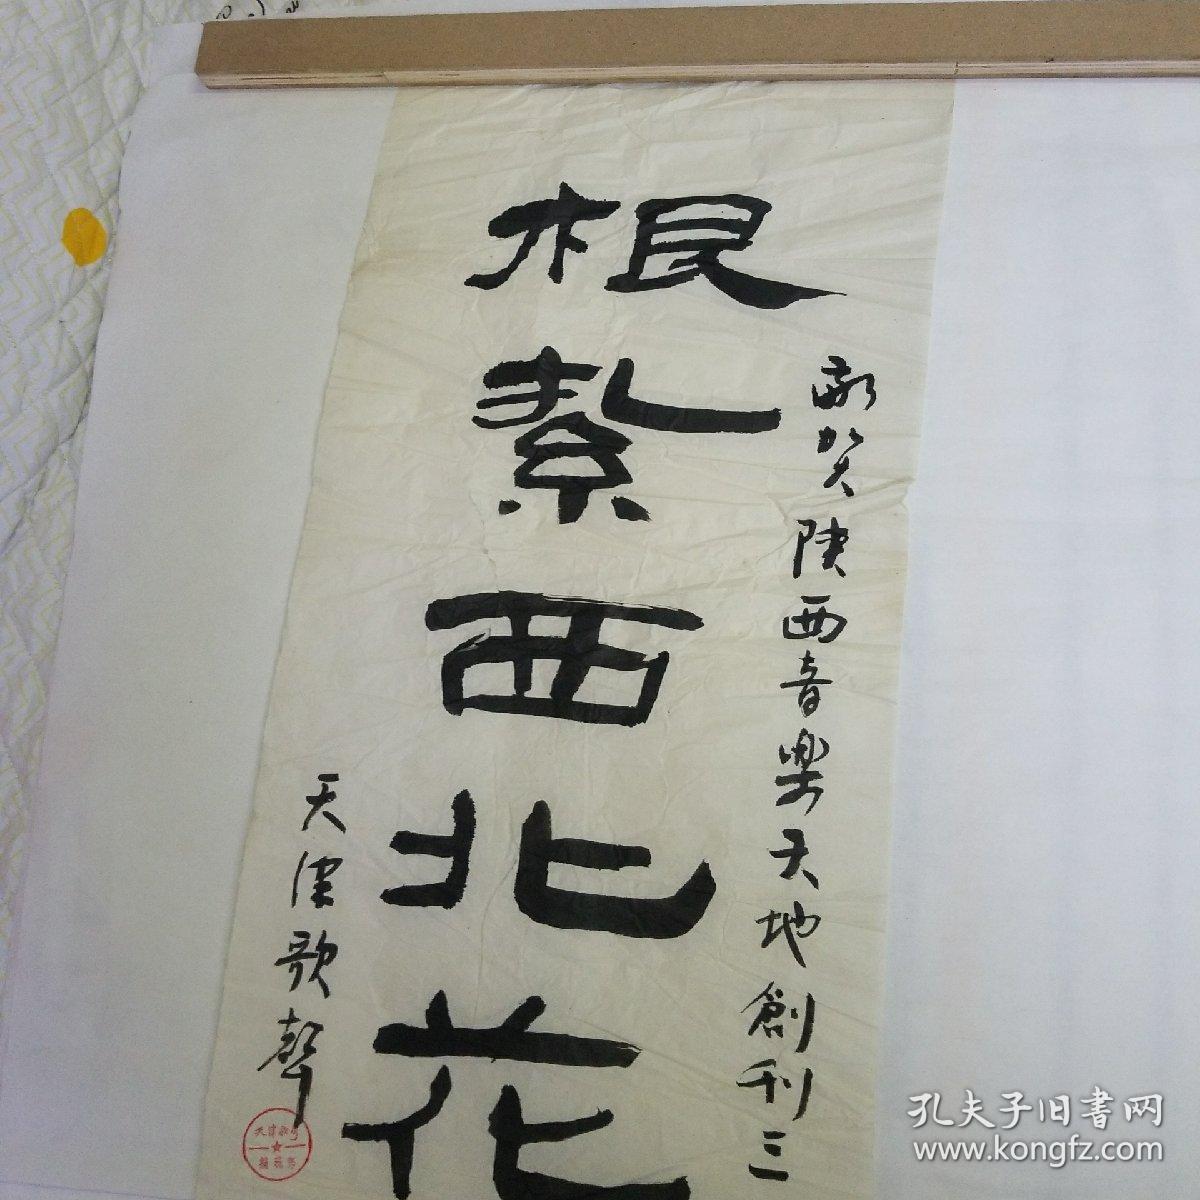 敬贺陕西音樂天地創刊三
根紮西北花
天津歌聲
天津歌声
编辑部
孔夫子旧书网
www.kongfz.com